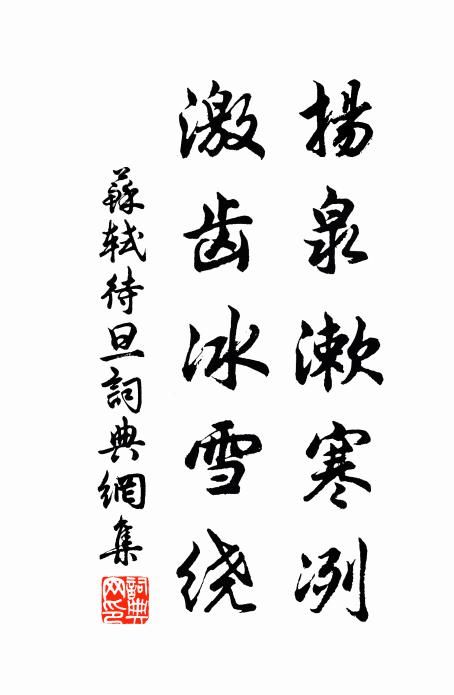 揚泉漱寒冽
激齿冰雪绕
蘇軾待旦詞典網集
詞典網印